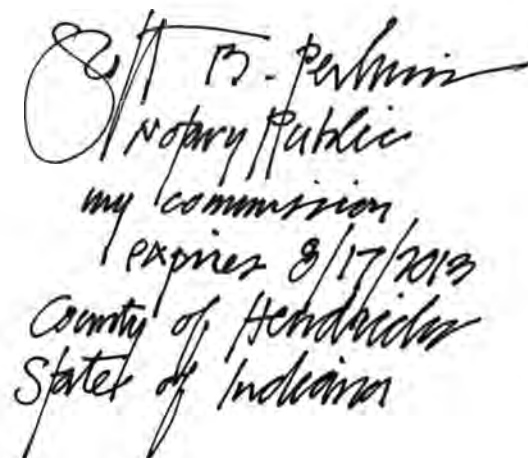 B. Perkins
Notary Public
my commission
expires 8/17/2013
County of Hendricks
State of Indiana